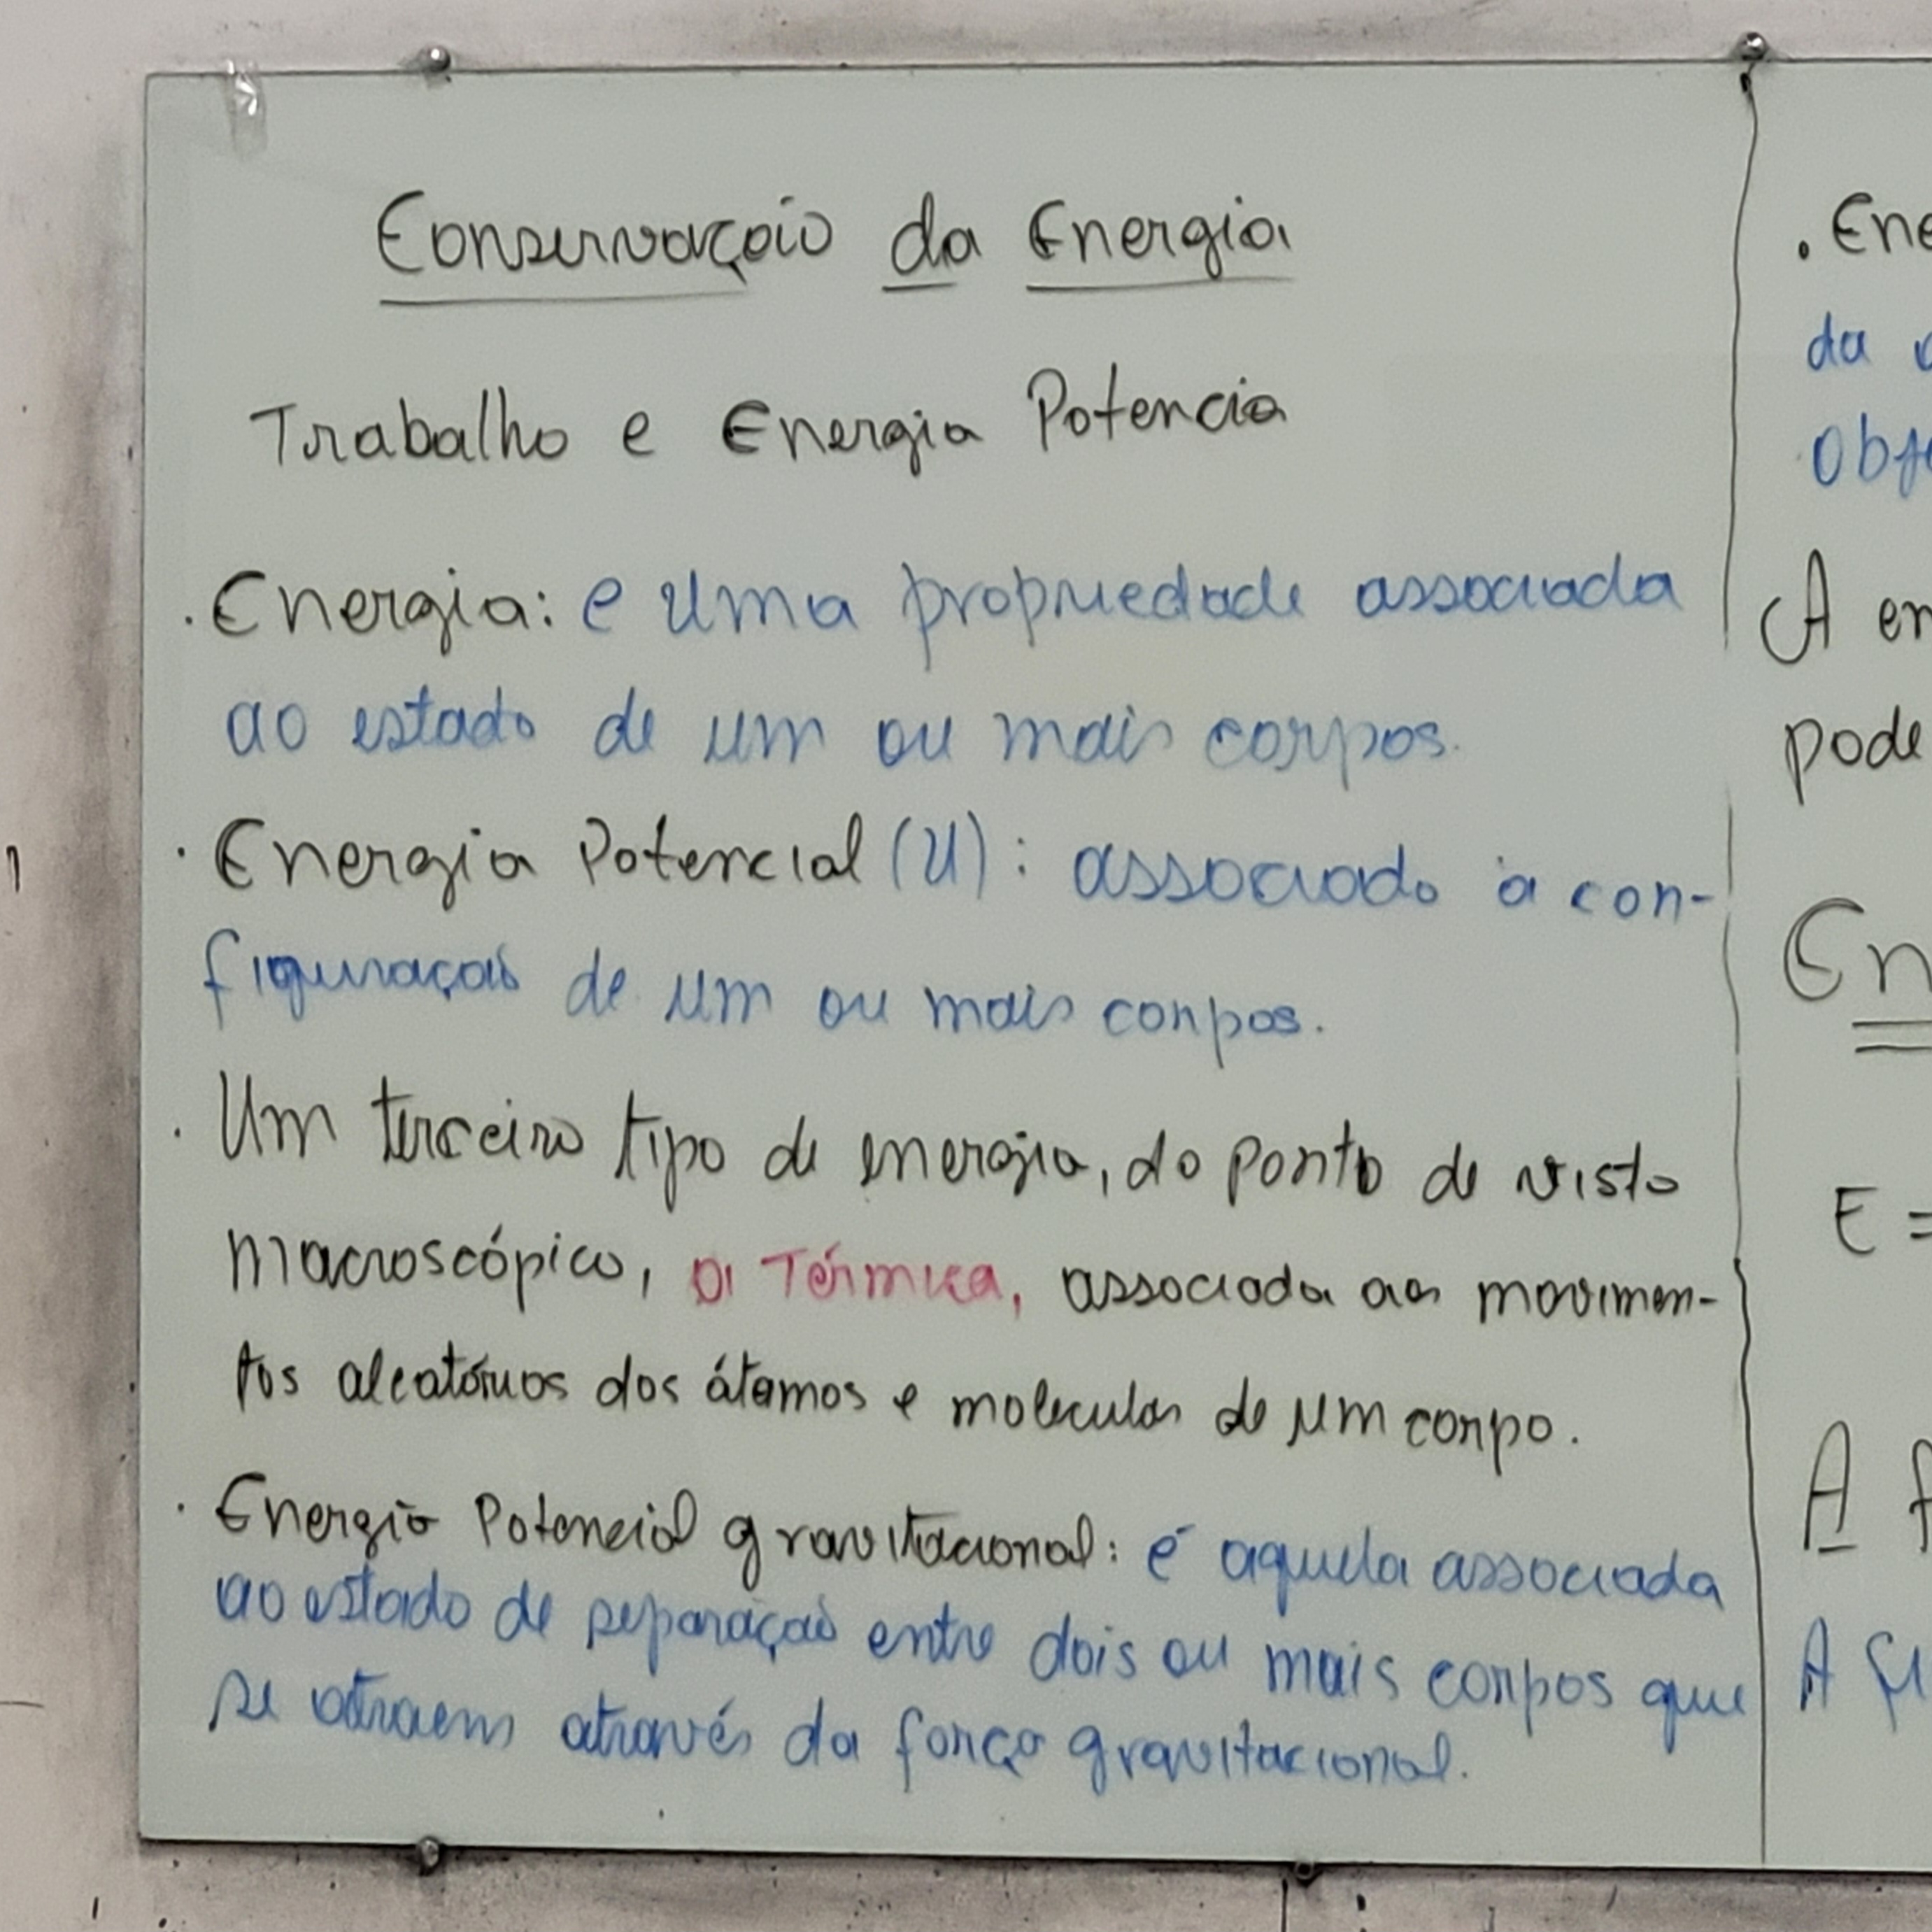 Conservação da Energia
Trabalho e Energia Potencia
. Energia: e uma propriedade associada
ao estado de um ou mais corpos.
. Energia Potencial (U): associado à con-
figuração de um ou mais corpos.
. Um terceiro tipo de energia, do ponto de visto
macroscópico, a Térmica, associada aos movimen-
tos aleatórios dos átomos e moleculas de um corpo.
. Energia Potencial gravitacional: é aquela associada
ao estado de separação entre dois ou mais corpos que
se atraem através da força gravitacional.
. Ene
da
Obje
A en
pode
En
E =
A f
A fu